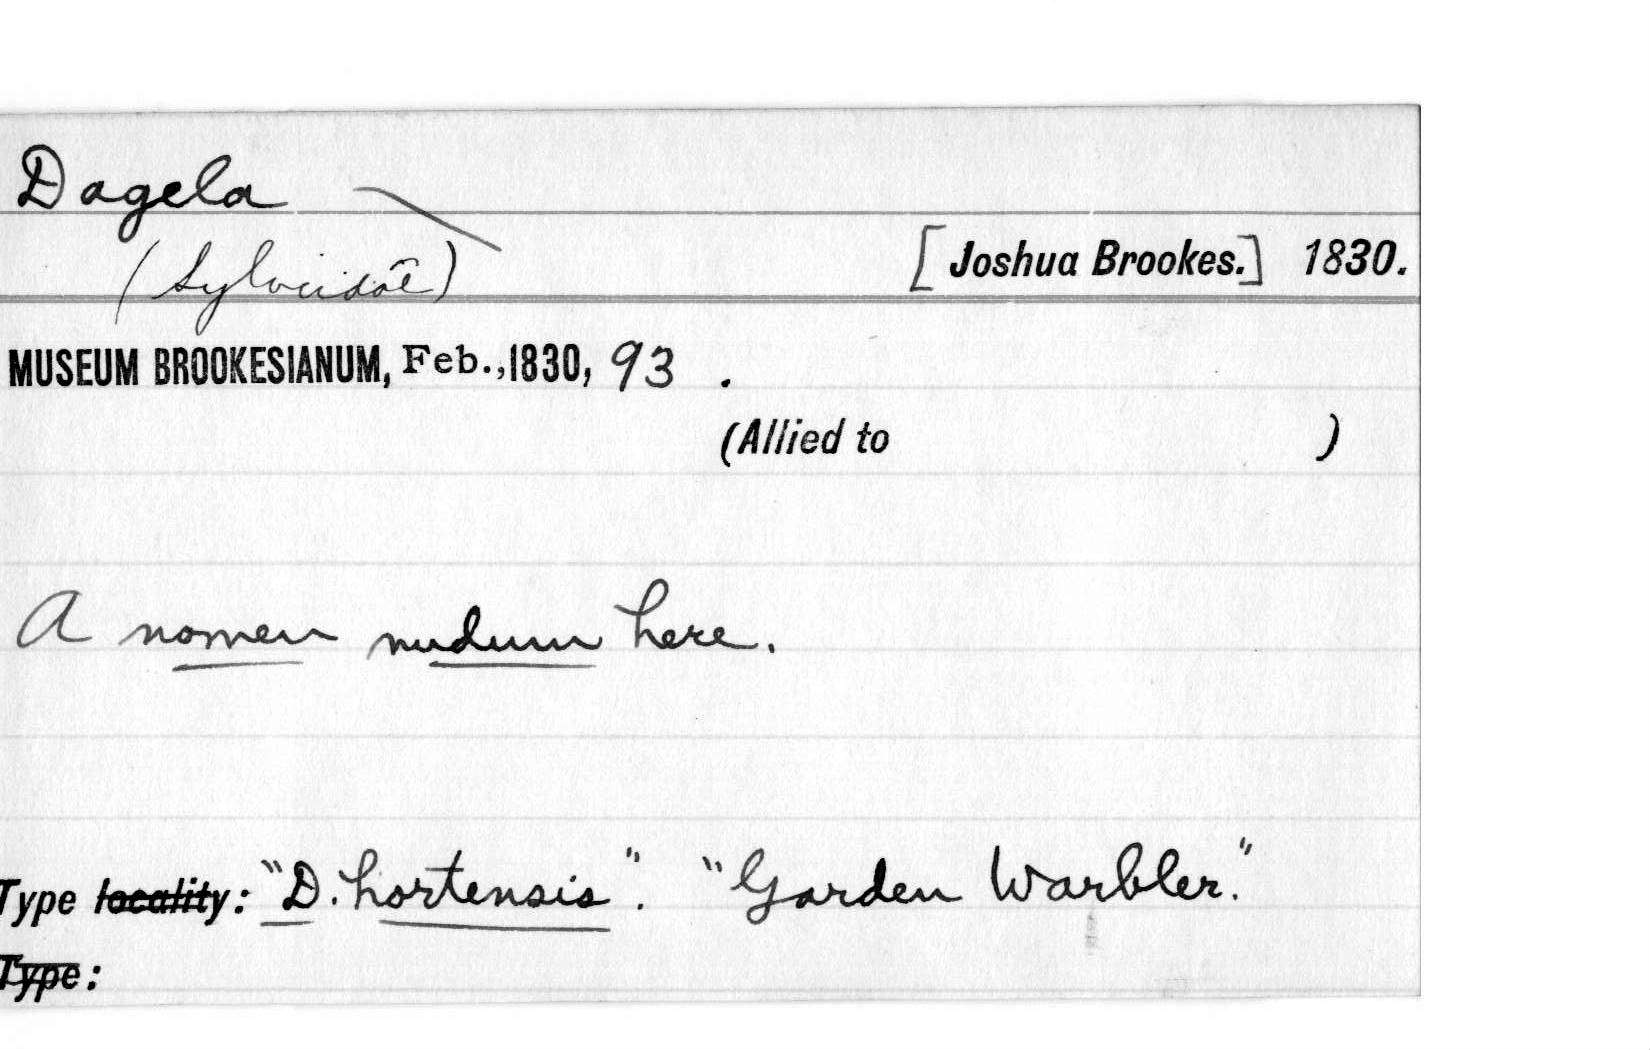 Dagela
(Sylviidae)
[Joshua Brookes.] 1830.
MUSEUM BROOKESIANUM, Feb., 1830, 93.
(Allied to )
A nomen nudum here.
Type locality: "D. hortensis". "Garden Warbler."
Type: